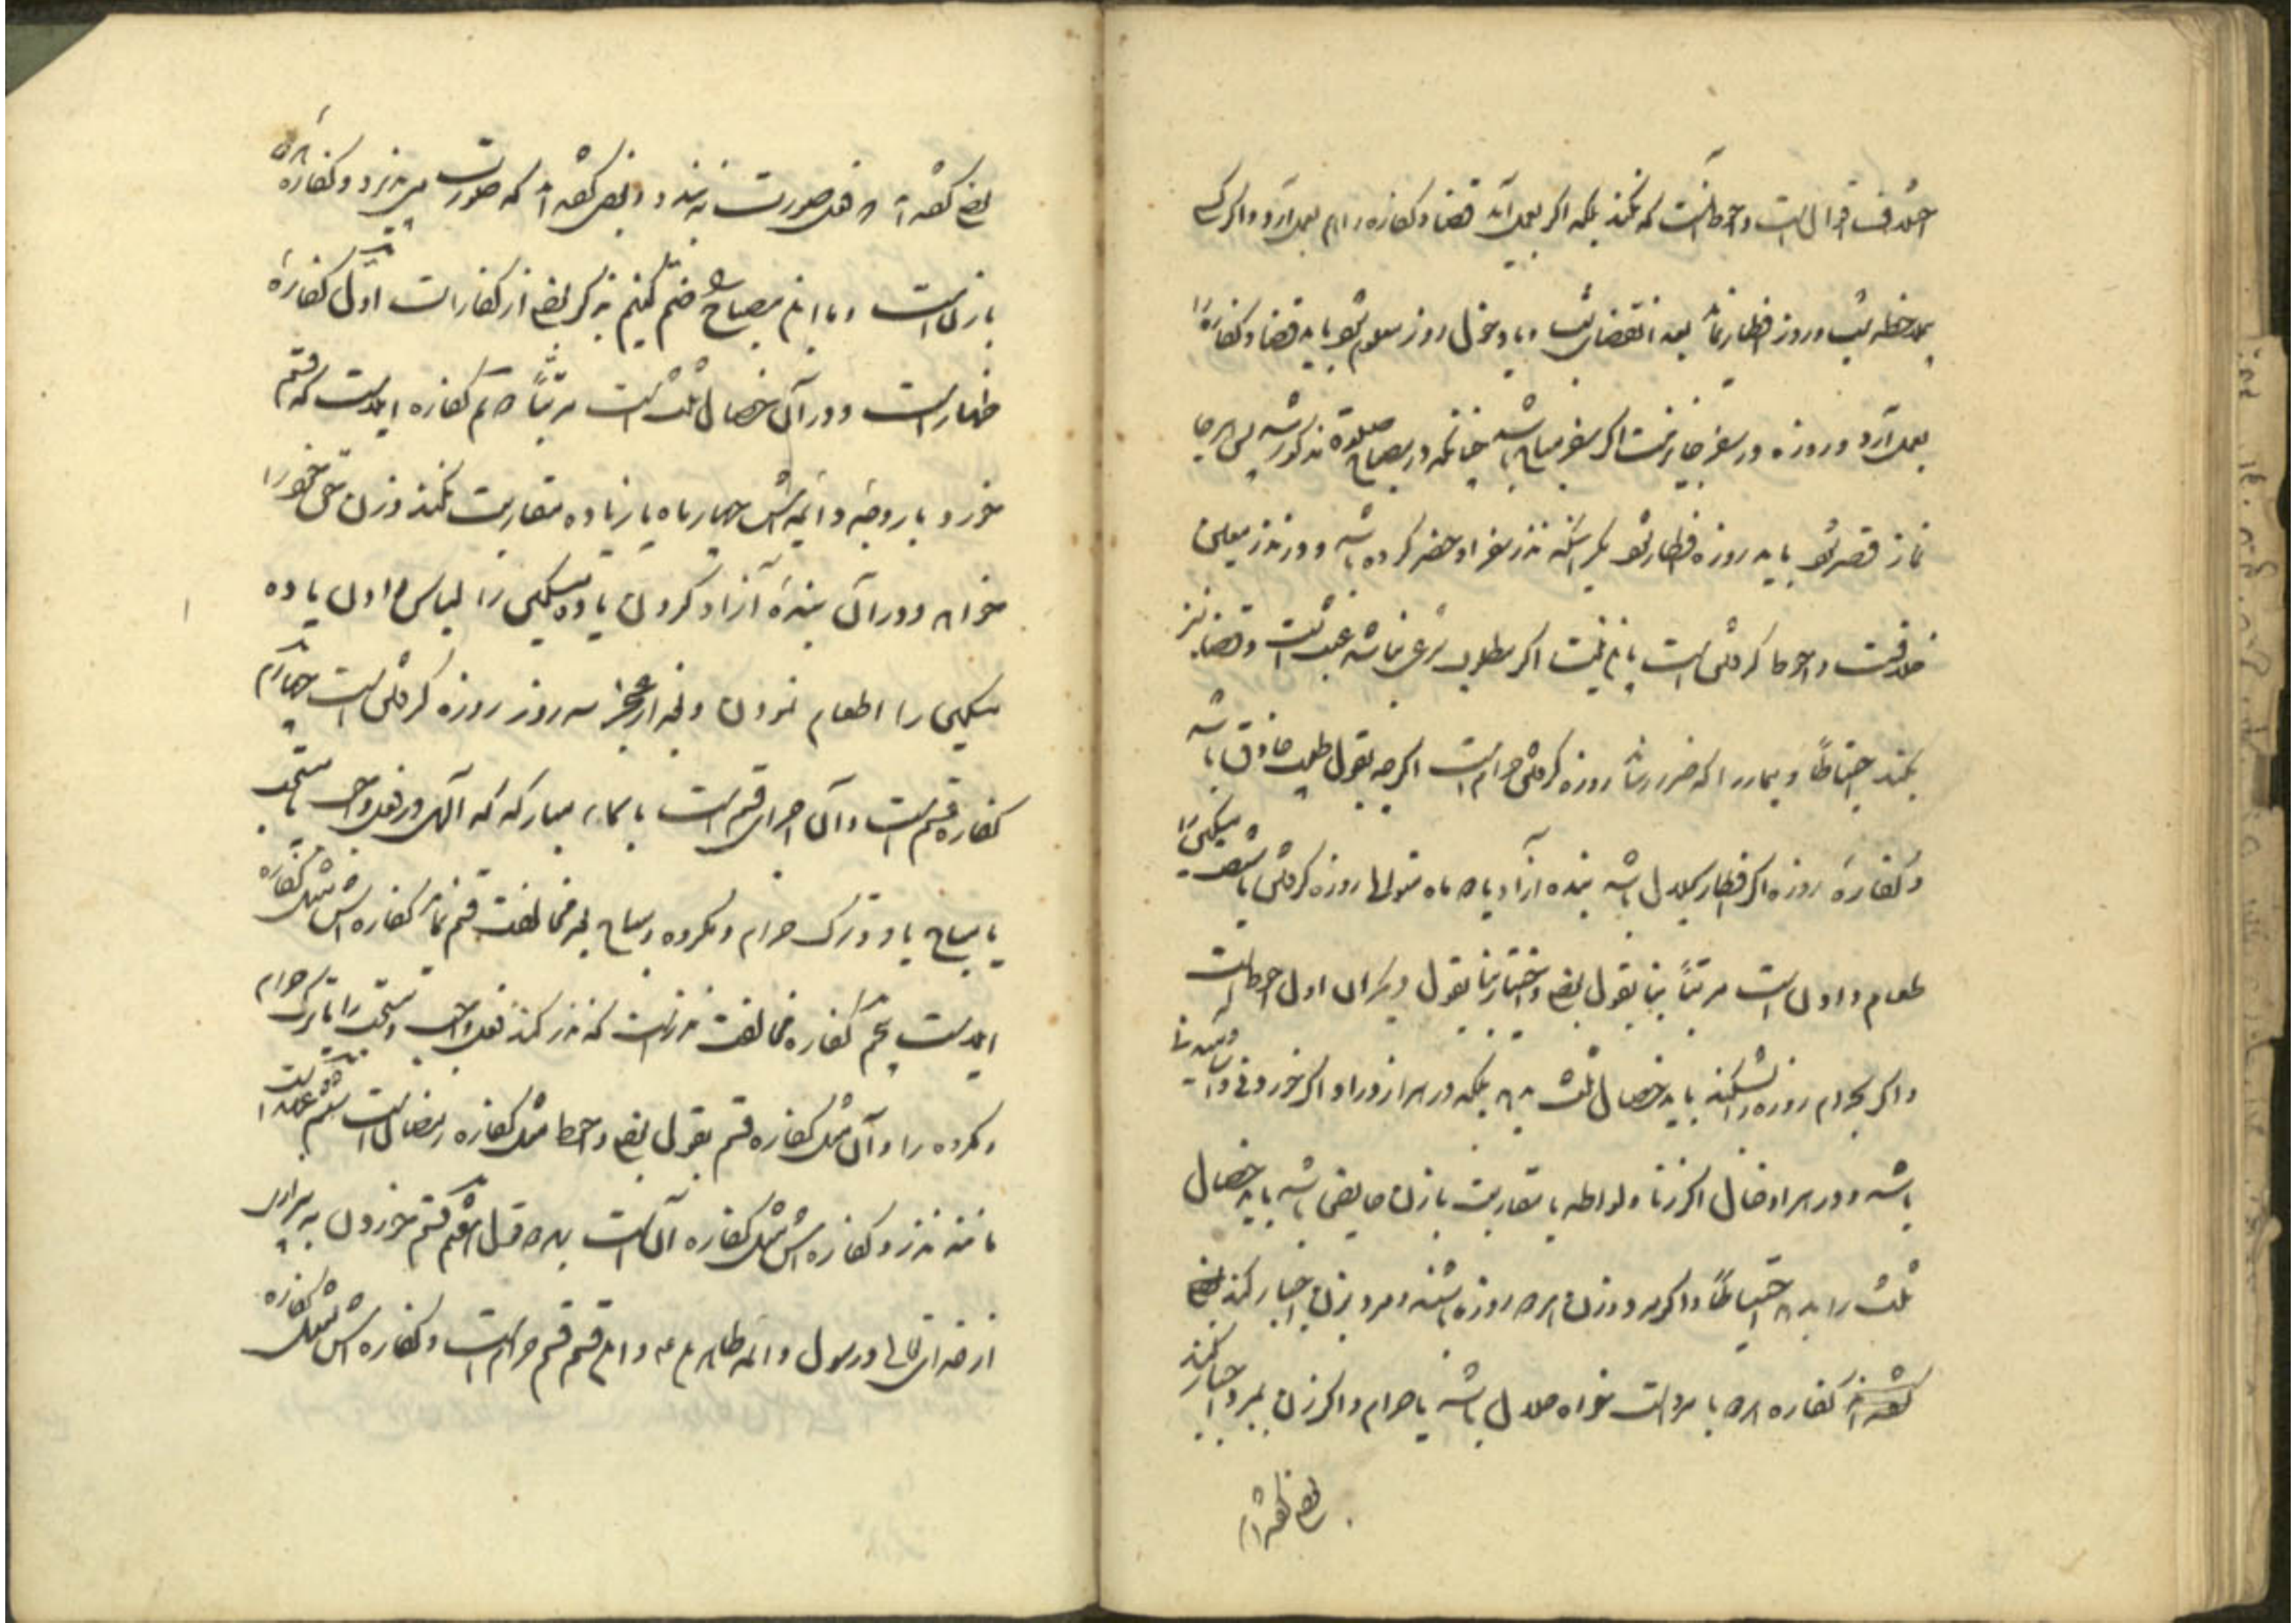 اختلاف اقوال است و احوط آنست که نکند بلکه اگر بعمل آید قضا و کفاره را هم بعمل آرد و اگر کسی
بملاحظه شب در روز افطار نماید بعد انقضای شب و یا دخول روز معلوم شود باید قضا و کفاره را
بعمل آرد و روزه در سفر جایز نیست اگر سفر مباح باشد چنانکه در مصباح صلوة مذکور شد پس هر جا
نماز قصر شود باید روزه افطار شود مگر آنکه نذر سفر او حضر کرده باشد و در نذر معین
خلافست و احوط گرفتن است باین نیت اگر مطلوب شرعی نباشد عبث است و قضا نیز
بکند احتیاطاً و بیمار را که ضرر رساند روزه گرفتن حرام است اگرچه بقول طبیب حاذق باشد
و کفاره روزه اگر افطار بحلال باشد بنده آزاد یا دو ماه متوالی روزه گرفتن یا شصت مسکین را
طعام دادن است مرتباً بنا بقول بعضی و اختیار بنا بقول دیگران اول احوط است
و اگر بحرام روزه را بشکند باید خصال ثلث بدهد بلکه در هر ازدراد اگر خوردنی و آشامیدنی
باشد و در هر ادخال اگر زنا و لواطه یا مقاربت با زن حایض باشد باید خصال
ثلث را بدهد احتیاطاً و اگر مرد و زن هر دو روزه باشند و مرد بزن اجبار کند
کفاره هر دو با مرد است خواه حلال باشد یا حرام و اگر زن بمرد اجبار کند
بعضی گفته اند
بعضی گفته اند این صورت نه بندد و بعضی گفته اند که صورت می پذیرد و کفاره
با زن است و باین مصباح ضم کنیم ذکر بعضی از کفارات اول کفاره
ظهار است و در آن خصال ثلث است مرتباً دویم کفاره ایلاست که قسم
خورد با زوجه دائمه اش چهار ماه یا زیاده مقاربت نکند و زن حق خود را
خواهد و در آن بنده آزاد کردن یا ده مسکین را لباس دادن یا ده
مسکین را اطعام نمودن و بعد از عجز سه روز روزه گرفتن است چهارم
کفاره قسم است و آن اجرای قسم است باسماء مبارکه که الهی در فعل واجب مستحب
یا مباح یا در ترک حرام و مکروه و مباح بعد مخالفت قسم نماید کفاره اش مثل کفاره
ایلاست پنجم کفاره مخالفت نذر است که نذر کند فعل واجب و مستحب را یا ترک حرام
و مکروه را و آن مثل کفاره قسم بقول بعضی و احوط مثل کفاره رمضان است ششم عهد است
مانند نذر و کفاره اش مثل کفاره آن است بهر دو قول هفتم قسم خوردن به بیزاری
از خدای تعالی و رسول و ائمه طاهرین ع و این قسم قسم حرام است و کفاره اش مثل کفاره